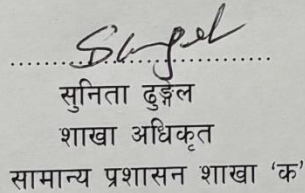 ..............................
सुनिता ढुङ्गेल
शाखा अधिकृत
सामान्य प्रशासन शाखा ‘क’